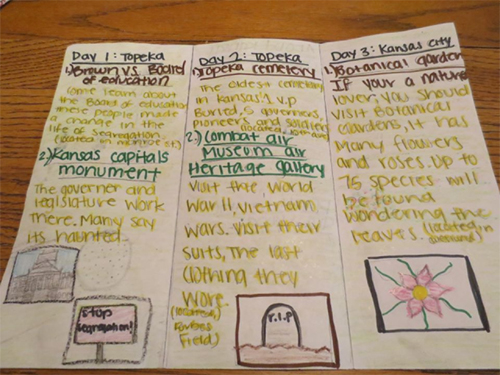 Day 1: Topeka
1.) Brown vs. Board
of education
Come learn about
the Board of education
where people made
a change in the
life of segregation.
(located in monroe st)
2.) Kansas capitals
monument
The governer and
legislature work
There. Many say
its haunted.
stop
segregation!
Day 2: Topeka
1.) Topeka cemetery
The oldest cemetery
in kansas. 1 v.p
Buried, 5 governers,
pioneers and soldiers
(located
2.) Combat air
Museum air
Heritage gallery
Visit the, World
War II, vietnam
wars. visit their
suits, The last
clothing they
wore.
(located
Forbes
Field)
r.I.P
Day 3: Kansas city
1.) Botanical garden
If your a nature
lover, you should
visit Botanical
Gardens, it has
Many flowers
and roses. up to
75 species will
be found
wondering the
leaves. (located in
overland)